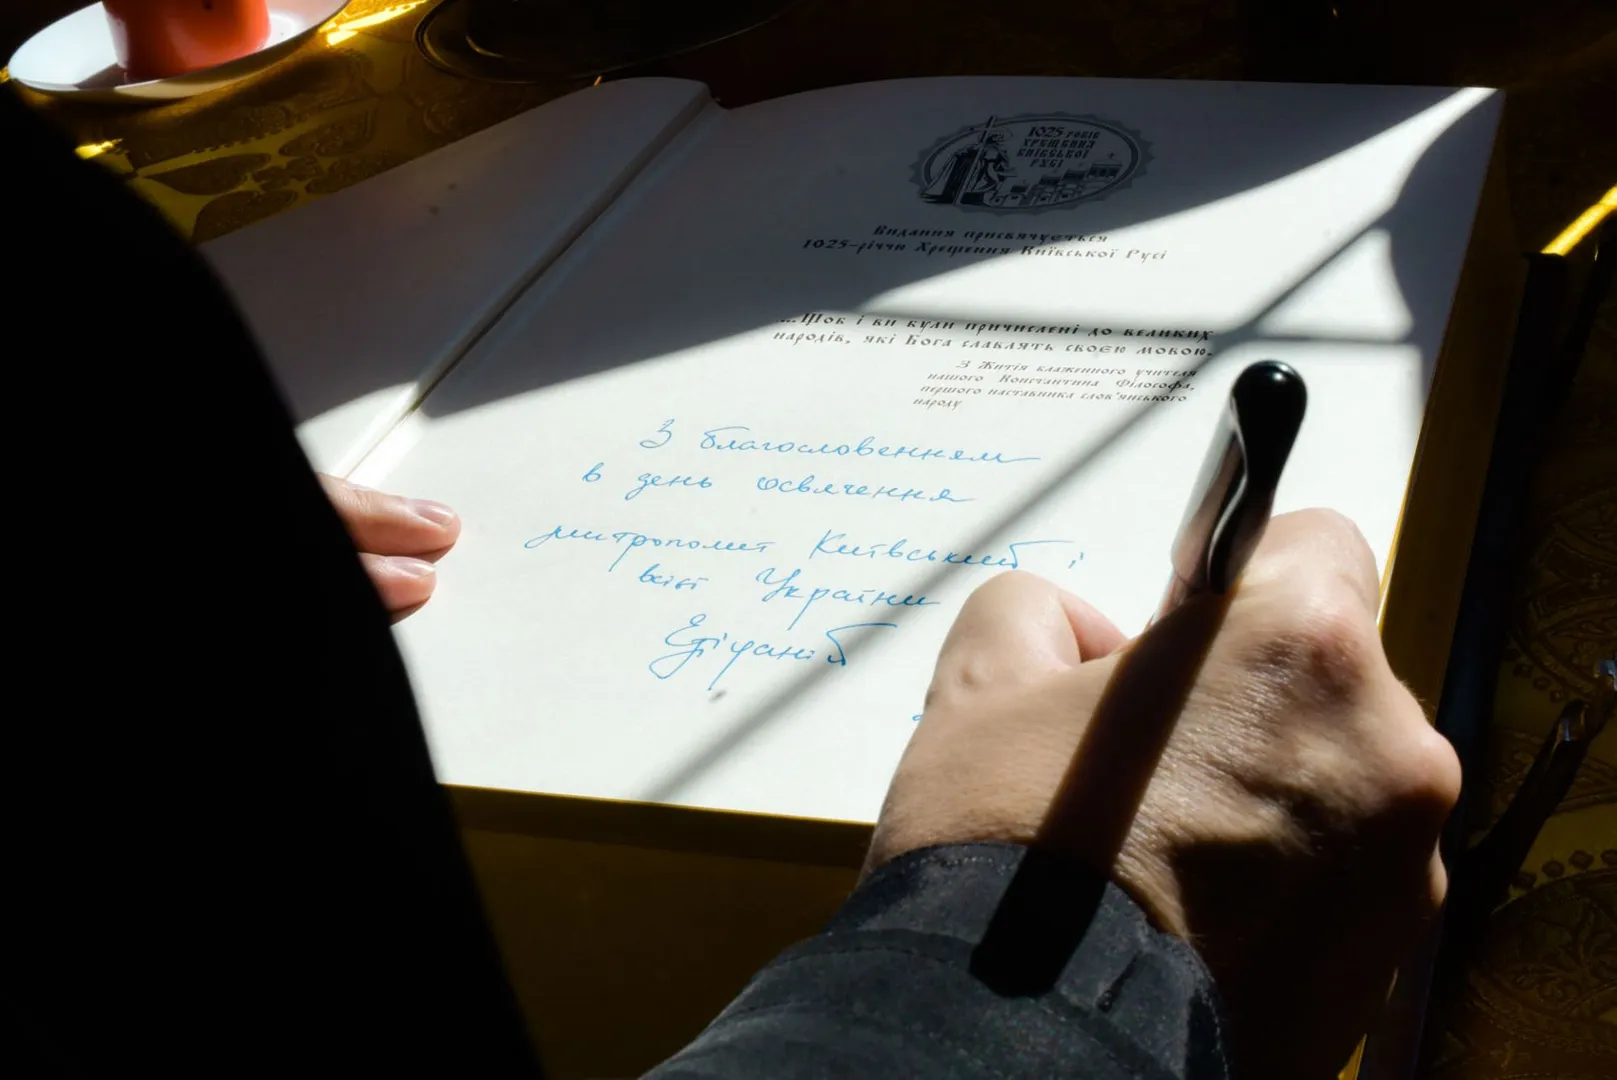 1025 років
Хрещення
Київської
Русі
Видання присвячується
1025-річчю Хрещення Київської Русі
...Щоб і ви були причислені до великих
народів, які Бога славлять своєю мовою.
З Житія блаженного учителя
нашого Константина Філософа,
першого наставника слов'янського
народу
З благословенням
в день освячення
митрополит Київський і
всієї України
Епіфаній